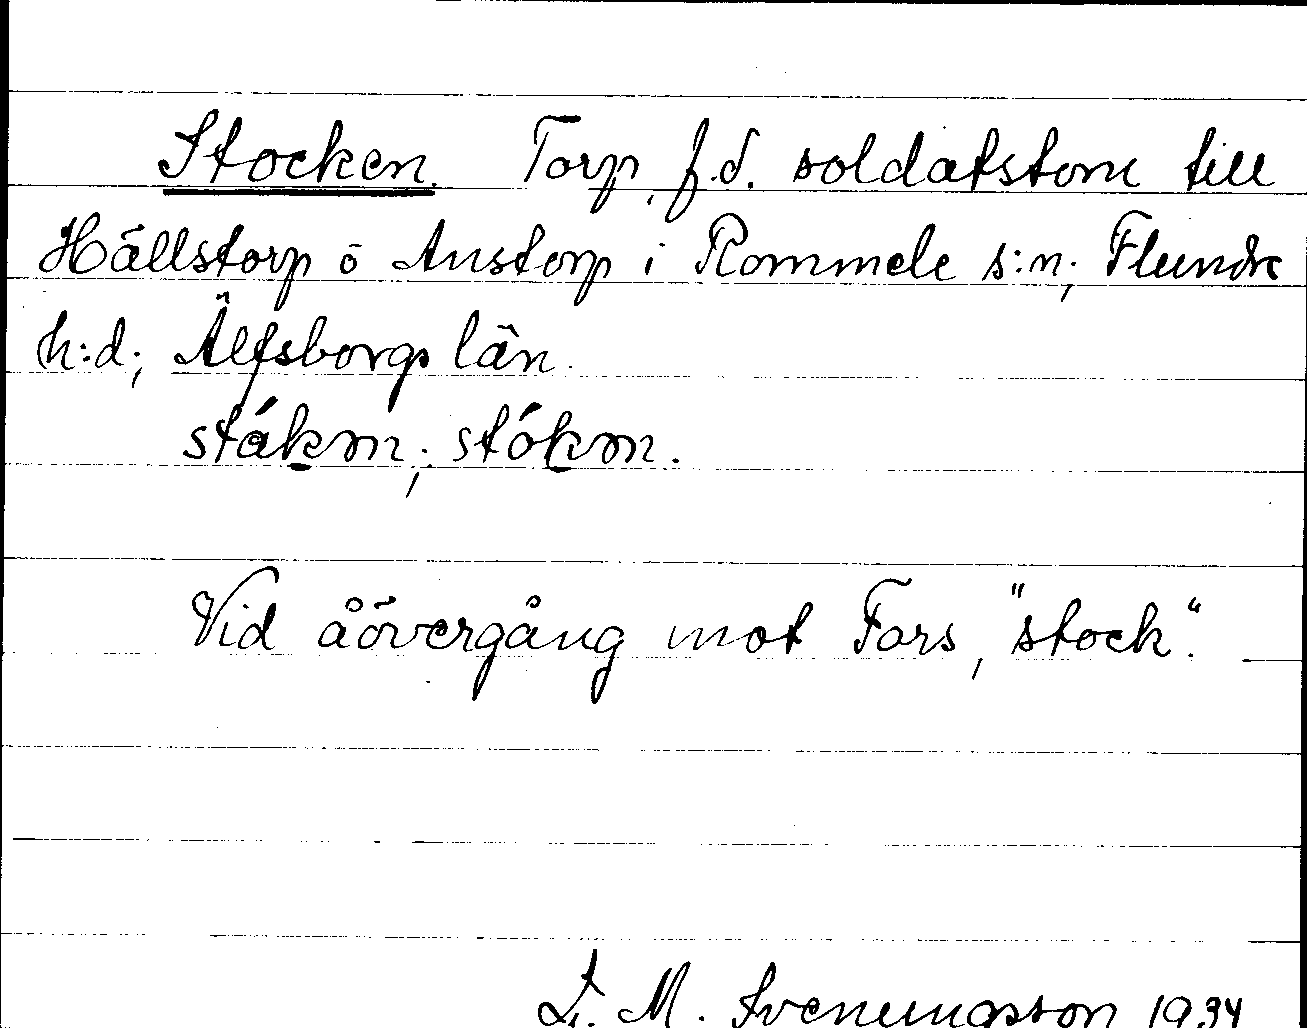 Stocken. Torp, f.d. soldatstom till
Hällstorp o Anstorp i Rommele s:n; Flundre
h:d; Älfsborgs län.
ståkm; stókm.
Vid åövergång mot Fors, "stock".
M. Svenungsson 1934